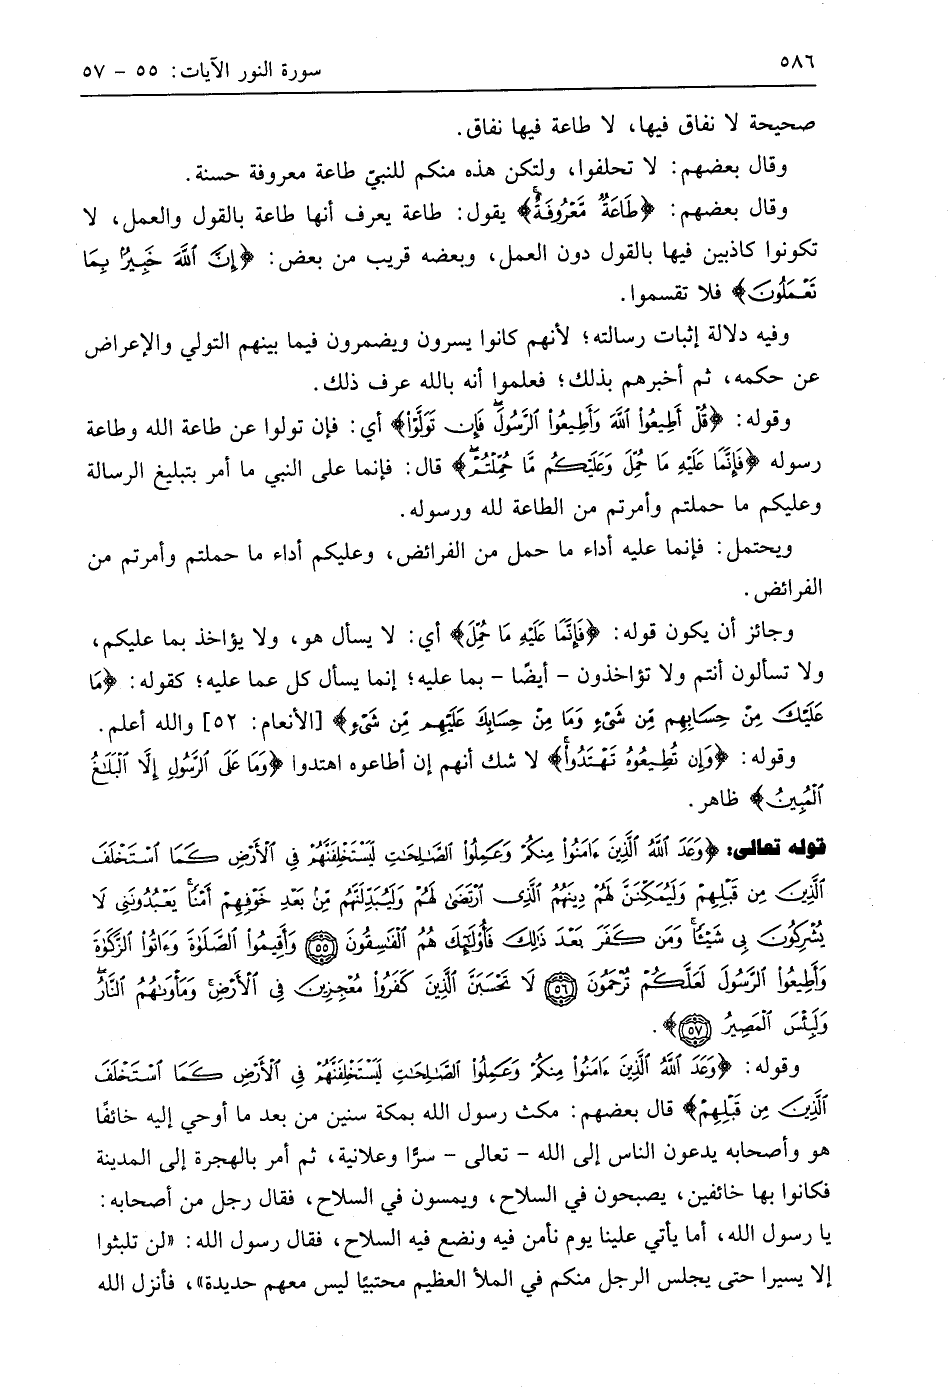 ٥٨٦
سورة النور الآيات: ٥٥ - ٥٧
صحيحة لا نفاق فيها، لا طاعة فيها نفاق.
وقال بعضهم: لا تحلفوا، ولتكن هذه منكم للنبيّ طاعة معروفة حسنة.
وقال بعضهم: ﴿طَاعَةٌ مَّعْرُوفَةٌ﴾ يقول: طاعة يعرف أنها طاعة بالقول والعمل، لا
تكونوا كاذبين فيها بالقول دون العمل، وبعضه قريب من بعض: ﴿إِنَّ ٱللَّهَ خَبِيرٌۢ بِمَا
تَعْمَلُونَ﴾ فلا تقسموا.
وفيه دلالة إثبات رسالته؛ لأنهم كانوا يسرون ويضمرون فيما بينهم التولي والإعراض
عن حكمه، ثم أخبرهم بذلك؛ فعلموا أنه بالله عرف ذلك.
وقوله: ﴿قُلْ أَطِيعُوا۟ ٱللَّهَ وَأَطِيعُوا۟ ٱلرَّسُولَۖ فَإِن تَوَلَّوْا۟﴾ أي: فإن تولوا عن طاعة الله وطاعة
رسوله ﴿فَإِنَّمَا عَلَيْهِ مَا حُمِّلَ وَعَلَيْكُم مَّا حُمِّلْتُمْۖ﴾ قال: فإنما على النبي ما أمر بتبليغ الرسالة
وعليكم ما حملتم وأمرتم من الطاعة لله ورسوله.
ويحتمل: فإنما عليه أداء ما حمل من الفرائض، وعليكم أداء ما حملتم وأمرتم من
الفرائض.
وجائز أن يكون قوله: ﴿فَإِنَّمَا عَلَيْهِ مَا حُمِّلَ﴾ أي: لا يسأل هو، ولا يؤاخذ بما عليكم،
ولا تسألون أنتم ولا تؤاخذون - أيضًا - بما عليه؛ إنما يسأل كل عما عليه؛ كقوله: ﴿مَا
عَلَيْكَ مِنْ حِسَابِهِم مِّن شَىْءٍ وَمَا مِنْ حِسَابِكَ عَلَيْهِم مِّن شَىْءٍ﴾ [الأنعام: ٥٢] والله أعلم.
وقوله: ﴿وَإِن تُطِيعُوهُ تَهْتَدُوا۟ۚ﴾ لا شك أنهم إن أطاعوه اهتدوا ﴿وَمَا عَلَى ٱلرَّسُولِ إِلَّا ٱلْبَلَٰغُ
ٱلْمُبِينُ﴾ ظاهر.
قوله تعالى: ﴿وَعَدَ ٱللَّهُ ٱلَّذِينَ ءَامَنُوا۟ مِنكُمْ وَعَمِلُوا۟ ٱلصَّٰلِحَٰتِ لَيَسْتَخْلِفَنَّهُمْ فِى ٱلْأَرْضِ كَمَا ٱسْتَخْلَفَ
ٱلَّذِينَ مِن قَبْلِهِمْ وَلَيُمَكِّنَنَّ لَهُمْ دِينَهُمُ ٱلَّذِى ٱرْتَضَىٰ لَهُمْ وَلَيُبَدِّلَنَّهُم مِّنۢ بَعْدِ خَوْفِهِمْ أَمْنًاۚ يَعْبُدُونَنِى لَا
يُشْرِكُونَ بِى شَيْـًٔاۚ وَمَن كَفَرَ بَعْدَ ذَٰلِكَ فَأُو۟لَٰٓئِكَ هُمُ ٱلْفَٰسِقُونَ ٥٥ وَأَقِيمُوا۟ ٱلصَّلَوٰةَ وَءَاتُوا۟ ٱلزَّكَوٰةَ
وَأَطِيعُوا۟ ٱلرَّسُولَ لَعَلَّكُمْ تُرْحَمُونَ ٥٦ لَا تَحْسَبَنَّ ٱلَّذِينَ كَفَرُوا۟ مُعْجِزِينَ فِى ٱلْأَرْضِۚ وَمَأْوَىٰهُمُ ٱلنَّارُۖ
وَلَبِئْسَ ٱلْمَصِيرُ ٥٧﴾.
وقوله: ﴿وَعَدَ ٱللَّهُ ٱلَّذِينَ ءَامَنُوا۟ مِنكُمْ وَعَمِلُوا۟ ٱلصَّٰلِحَٰتِ لَيَسْتَخْلِفَنَّهُمْ فِى ٱلْأَرْضِ كَمَا ٱسْتَخْلَفَ
ٱلَّذِينَ مِن قَبْلِهِمْ﴾ قال بعضهم: مكث رسول الله بمكة سنين من بعد ما أوحي إليه خائفًا
هو وأصحابه يدعون الناس إلى الله - تعالى - سرًّا وعلانية، ثم أمر بالهجرة إلى المدينة
فكانوا بها خائفين، يصبحون في السلاح، ويمسون في السلاح، فقال رجل من أصحابه:
يا رسول الله، أما يأتي علينا يوم نأمن فيه ونضع فيه السلاح، فقال رسول الله: «لن تلبثوا
إلا يسيرا حتى يجلس الرجل منكم في الملأ العظيم محتبيًا ليس معهم حديدة»، فأنزل الله